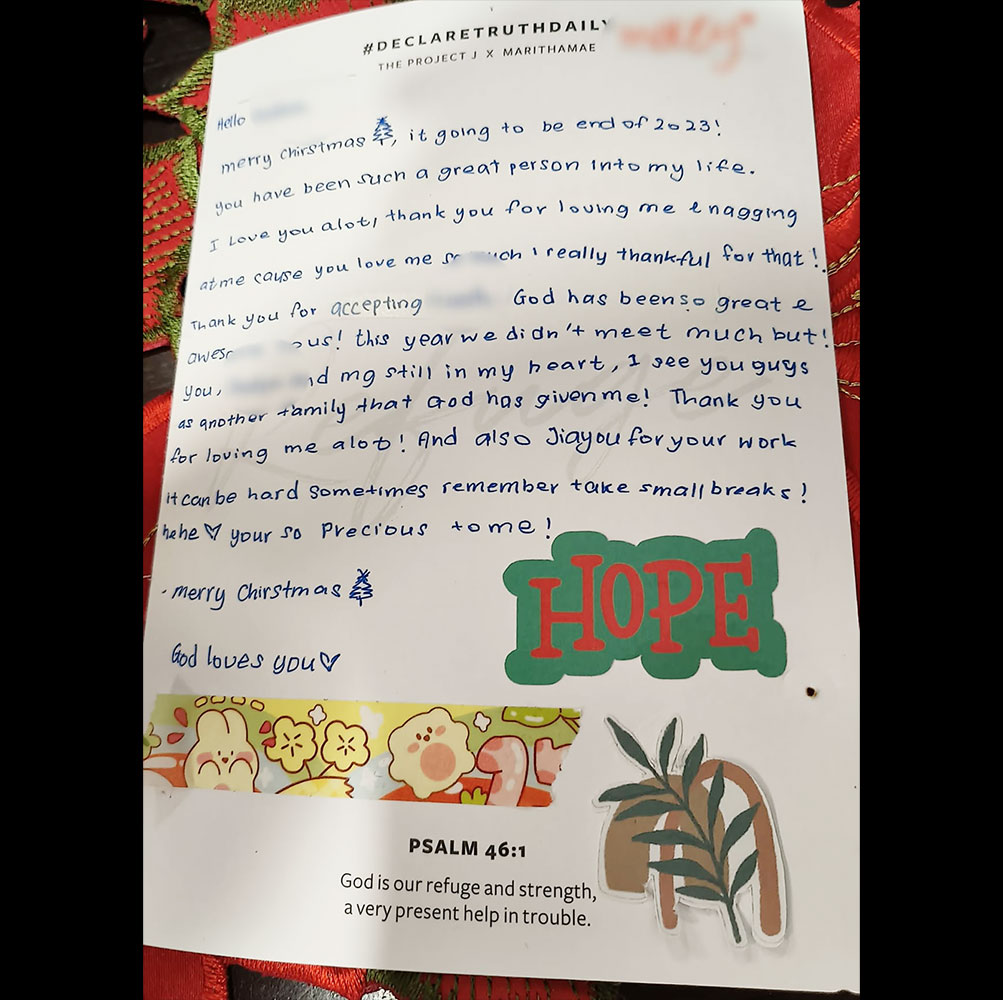 #DECLARETRUTHDAILY
THE PROJECT J X MARITHAMAE
Hello
merry chirstmas, it going to be end of 2023!
you have been such a great person into my life.
I Love you alot, thank you for loving me & nagging
at me cause you love me so much I really thankful for that!
Thank you for accepting God has been so great &
us! this year we didn't meet much but!
you, mg still in my heart, I see you guys
as another family that God has given me! Thank you
for loving me alot! And also Jiayou for your work
it can be hard sometimes remember take small breaks!
hehe ♡ your so Precious to me!
- merry Chirstmas
God loves you ♡
Refuge
HOPE
PSALM 46:1
God is our refuge and strength,
a very present help in trouble.